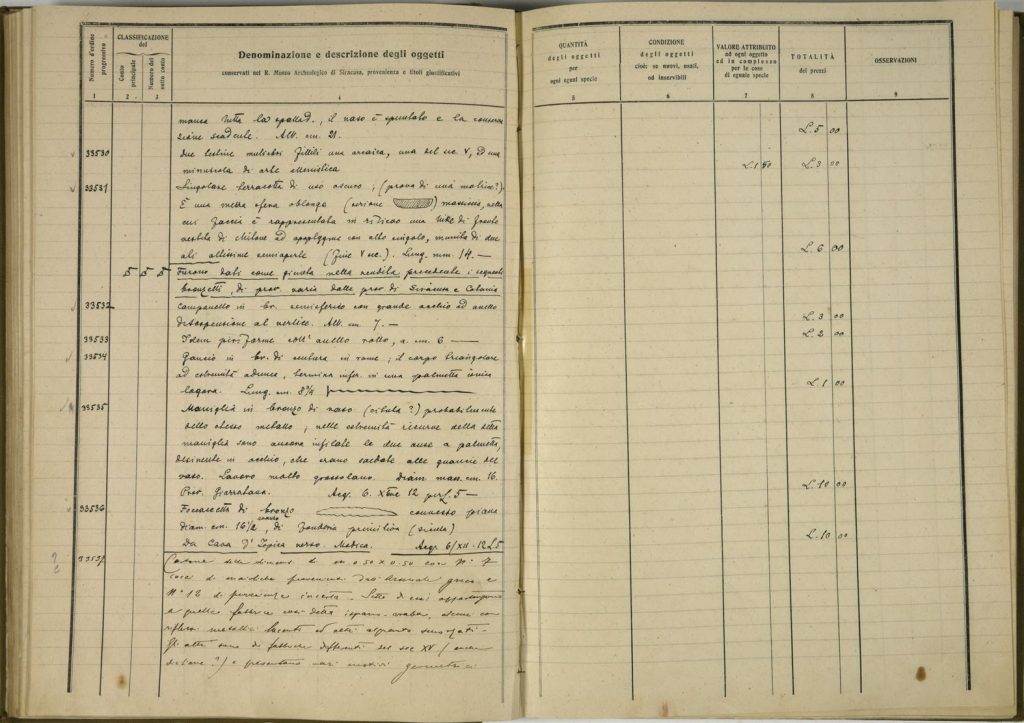 Numero d'ordine progressivo
CLASSIFICAZIONE del
Conto principale
Numero del sotto conto
Denominazione e descrizione degli oggetti
conservati nel R. Museo Archeologico di Siracusa, provenienza e titoli giustificativi
QUANTITÀ degli oggetti per ogni egual specie
CONDIZIONE degli oggetti cioè: se nuovi, usati, od inservibili
VALORE ATTRIBUITO ad ogni oggetto ed in complesso per le cose di eguale specie
TOTALITÀ dei prezzi
OSSERVAZIONI
1 2 3 4 5 6 7 8 9
manca tutta la spalla, il vaso è spuntato e la conserva
zione scadente. Alt. cm. 21. L. 5 00
33530 due testine muliebri fittili una arcaica, una del sec. V, ed una
minuscola di arte ellenistica L. 1 50 L. 3 00
33531 Singolare terracotta di uso oscuro; (prova di una matrice?).
È una mezza sfera oblonga (sezione) massiccia, nella
cui faccia è rappresentata in rilievo una Nike di fronte
vestita di chitone ad apoptygma con alto cingolo, munita di due
ali altissime semiaperte (fine V sec.). Lung. mm. 14. — L. 6 00
5 5 5 Furono dati come giunta nella vendita precedente i seguenti
bronzetti, di prov. varia dalle prov. di Siracusa e Catania
33532 Campanello in br. semisferico con grande occhio ad anello
di sospensione al vertice. Alt. cm. 7. — L. 3 00
33533 Idem piriforme coll' anello rotto, a. cm. 6 — L. 2 00
33534 Gancio in br. di cintura in rame; il corpo triangolare
ad estremità adunca, termina infer. in una palmetta ionica
Lung. cm. 8¾ L. 1 00
33535 Maniglia in bronzo di vaso (situla?) probabilmente
dello stesso metallo; nelle estremità ricurve della detta
maniglia sono ancora infilate le due anse a palmetta,
desinente in occhio, che erano saldate alle guancie del
vaso. Lavoro molto grossolano. Diam. mass. cm. 16.
Prov. Giarratana. Acq. 6. Xbre 12 per L. 5 — L. 10 00
33536 di bronzo connesso piana
diam. cm. 16½, di fonderia primitiva (sicula)
Da Cava d'Ispica verso Modica. Acq. 6/XII - 12 L 5 L. 10 00
33537 delle dimens. di m. 0.50 x 0.50 con N° 7
di maiolica greca e
N° 12 di provenienza incerta. Sette di essi appartengono
a quella fabbrica così detta ispano-araba, alcune con
riflessi metallici lucenti ed altri alquanto
Gli altri sono di fabbriche differenti del sec XV
?) e presentano vari motivi geometrici